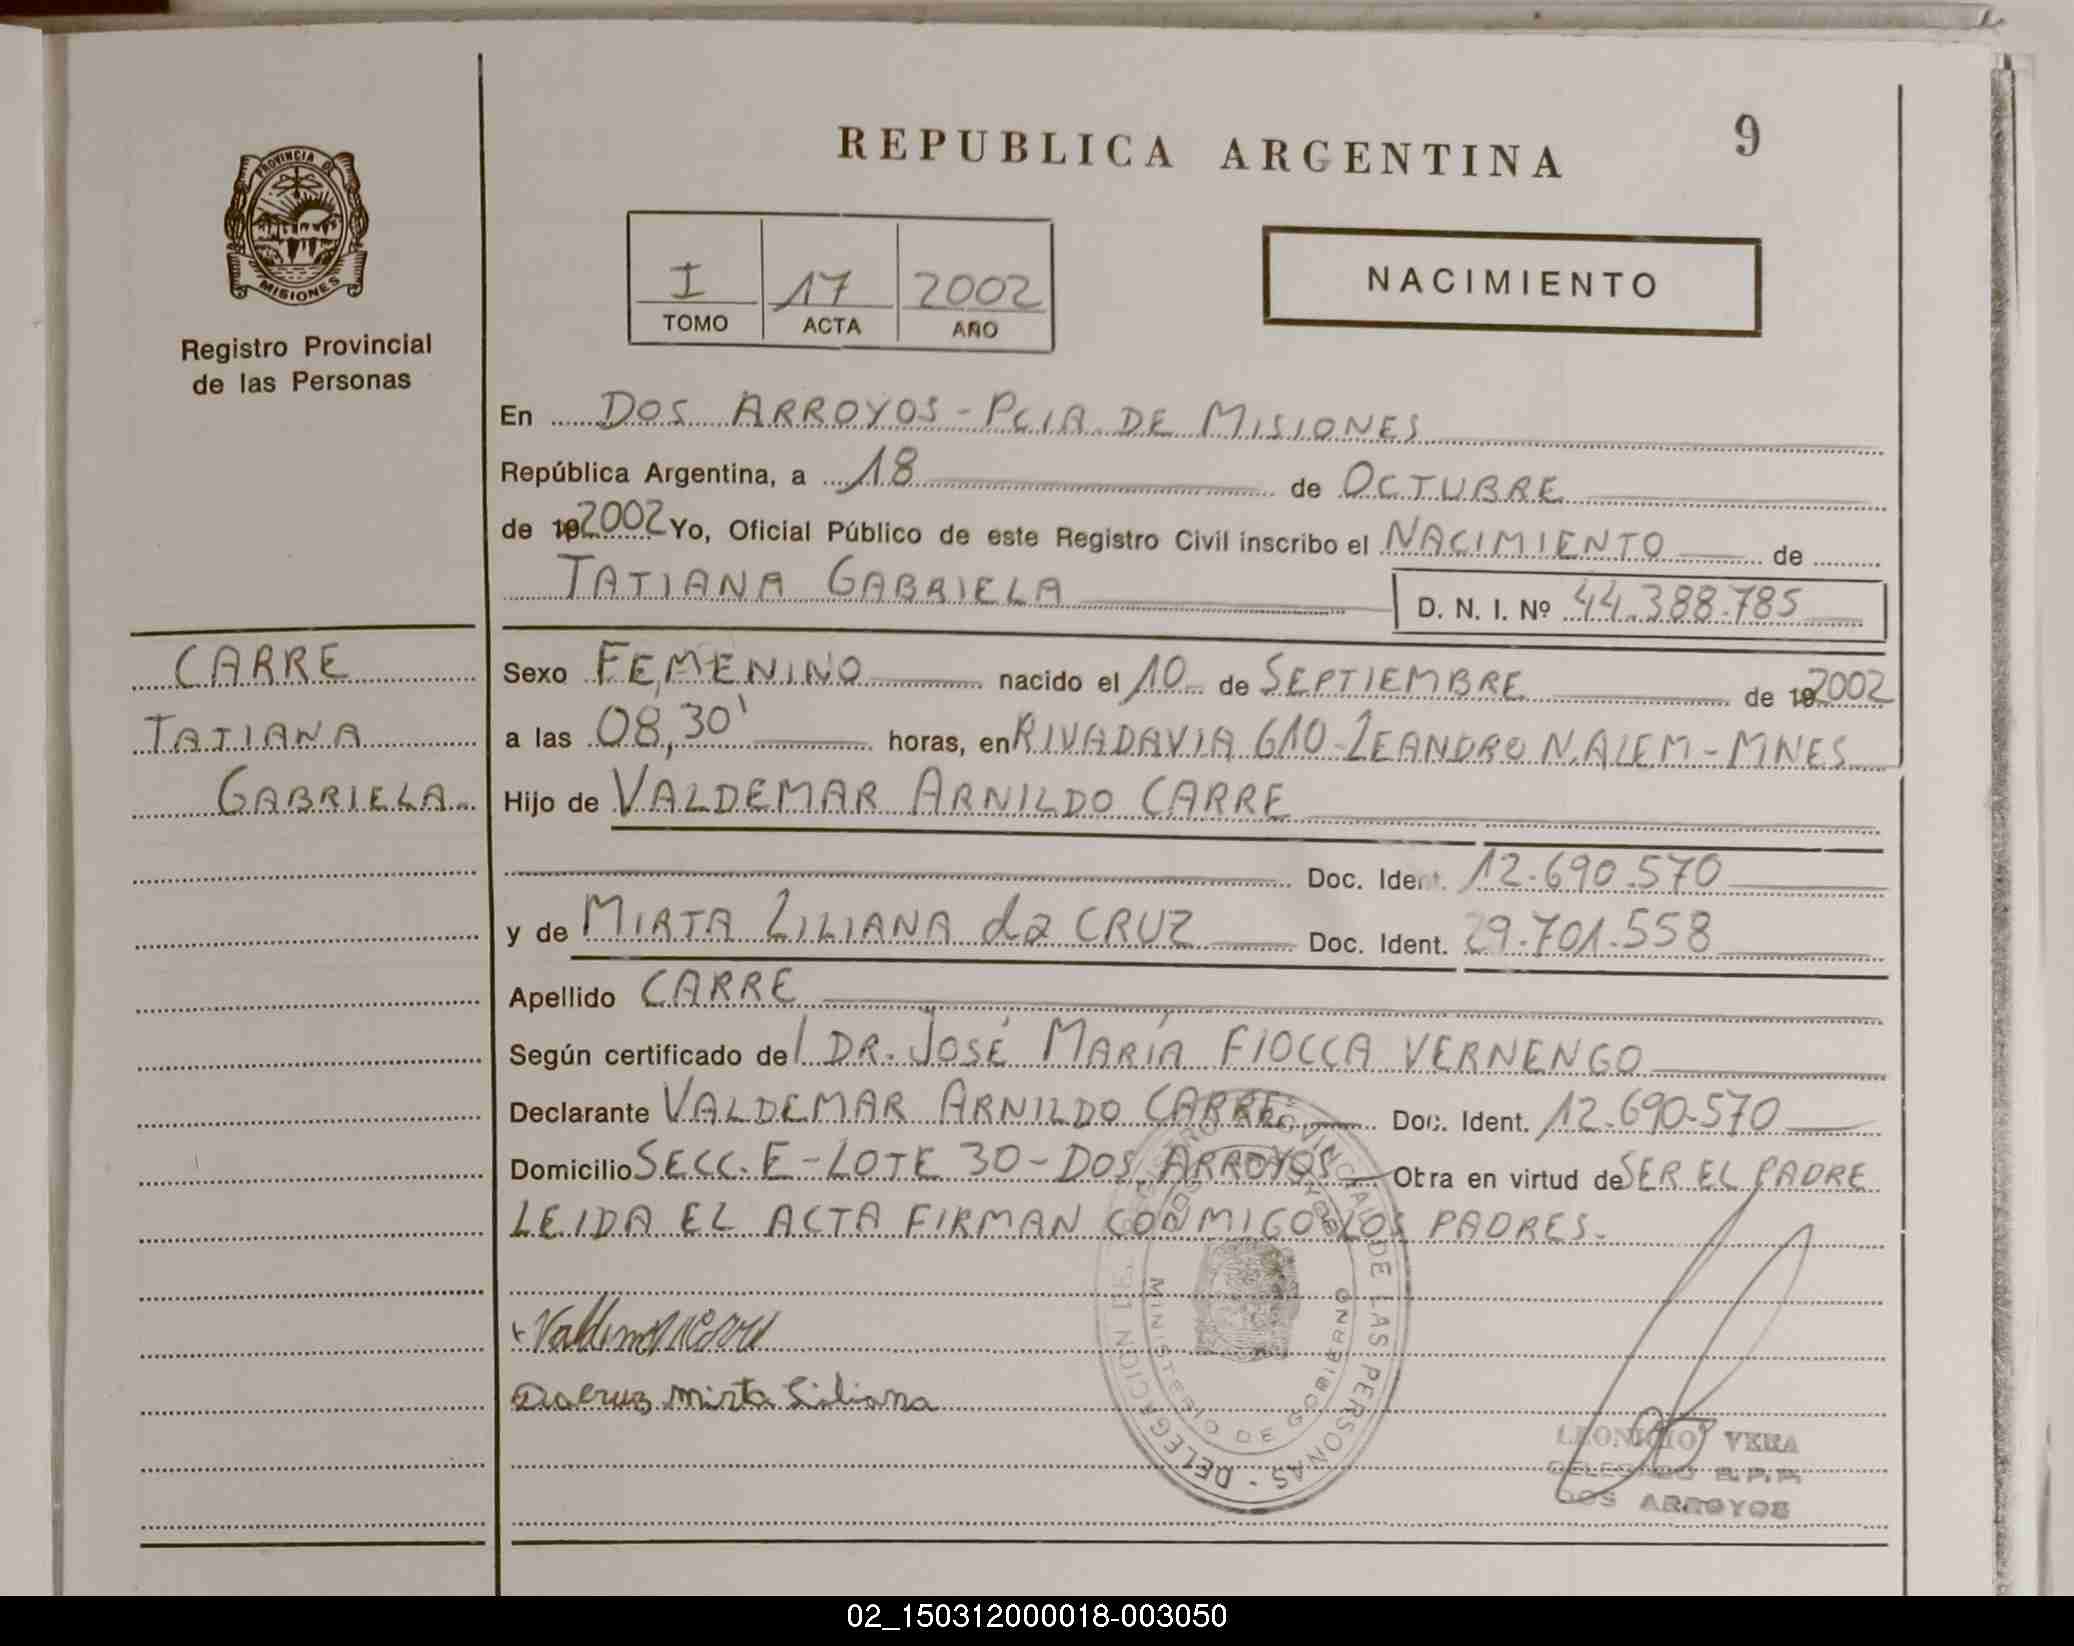 REPUBLICA ARGENTINA
9
PROVINCIA DE
MISIONES
Registro Provincial
de las Personas
I 17 2002
TOMO ACTA AÑO
NACIMIENTO
En DOS ARROYOS - PCIA DE MISIONES
República Argentina, a 18 de OCTUBRE
de 192002 Yo, Oficial Público de este Registro Civil inscribo el NACIMIENTO de
TATIANA GABRIELA D. N. I. Nº 44.388.785
CARRE
TATIANA
GABRIELA
Sexo FEMENINO nacido el 10 de SEPTIEMBRE de 192002
a las 08,30' horas, en RIVADAVIA 610-LEANDRO N. ALEM-MNES
Hijo de VALDEMAR ARNILDO CARRE
Doc. Ident. 12.690.570
y de MIRTA LILIANA da CRUZ Doc. Ident. 29.701.558
Apellido CARRE
Según certificado del DR. JOSÉ MARÍA FIOCCA VERNENGO
Declarante VALDEMAR ARNILDO CARRE Doc. Ident. 12.690.570
Domicilio SECC. E - LOTE 30 - DOS ARROYOS Obra en virtud de SER EL PADRE
LEIDA EL ACTA FIRMAN CONMIGO LOS PADRES.
REGISTRO PROVINCIAL DE LAS PERSONAS - DELEGACION DE
DOS ARROYOS
MINISTERIO DE GOBIERNO
Dacruz mirta Liliana
LEONICIO VERA
DELEGADO R.P.P.
DOS ARROYOS
02_150312000018-003050